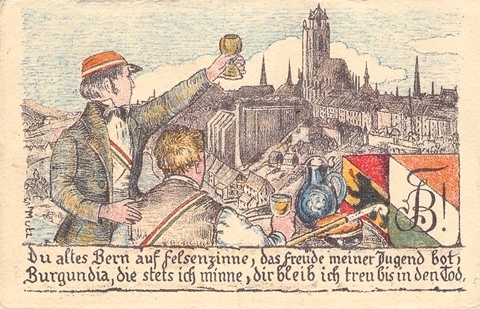 Du altes Bern auf Felsenzinne, das Freude meiner Jugend bot;
Burgundia, die stets ich minne, dir bleib ich treu bis in den Tod.